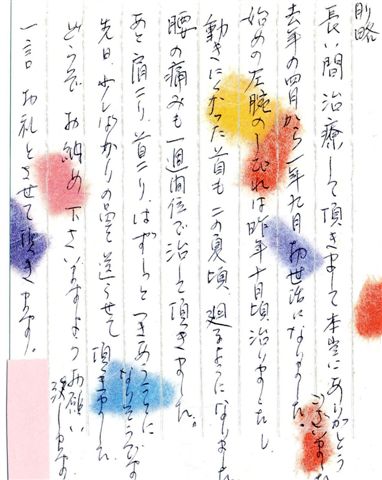 前略
長い間 治療して頂きまして本当にありがとうございました。
去年の四月から一年九月お世話になりました。
始めの左腕のしびれは昨年十月頃治りましたし
動きにくかった首も この夏頃、廻るようになりました
腰の痛みも一週間位で治して頂きました。
あと肩こり、首こり、はずーっとつきあうことになりそうです
先日、少しばかりの品を送らせて頂きました
どうぞ お納め下さいますようお願い致します
一言 お礼とさせて頂きます。